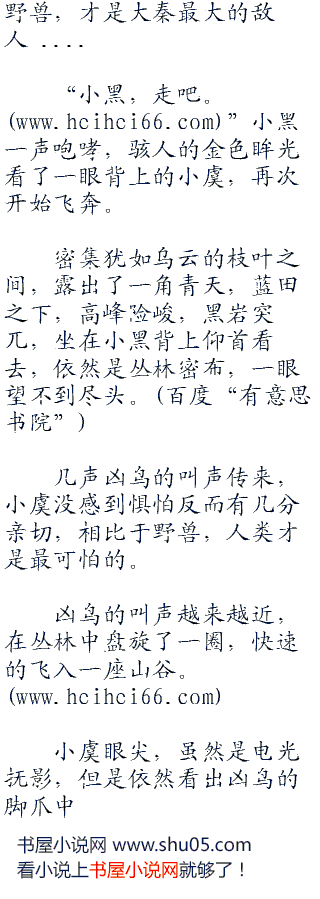 野兽，才是大秦最大的敌
人 ....
“小黑，走吧。
(www.hcihci66.com)”小黑
一声咆哮，骇人的金色眸光
看了一眼背上的小虞，再次
开始飞奔。
密集犹如乌云的枝叶之
间，露出了一角青天，蓝田
之下，高峰险峻，黑岩突
兀，坐在小黑背上仰首看
去，依然是丛林密布，一眼
望不到尽头。(百度“有意思
书院”)
几声凶鸟的叫声传来，
小虞没感到惧怕反而有几分
亲切，相比于野兽，人类才
是最可怕的。
凶鸟的叫声越来越近，
在丛林中盘旋了一圈，快速
的飞入一座山谷。
(www.hcihci66.com)
小虞眼尖，虽然是电光
抚影，但是依然看出凶鸟的
脚爪中
书屋小说网 www.shu05.com
看小说上书屋小说网就够了！